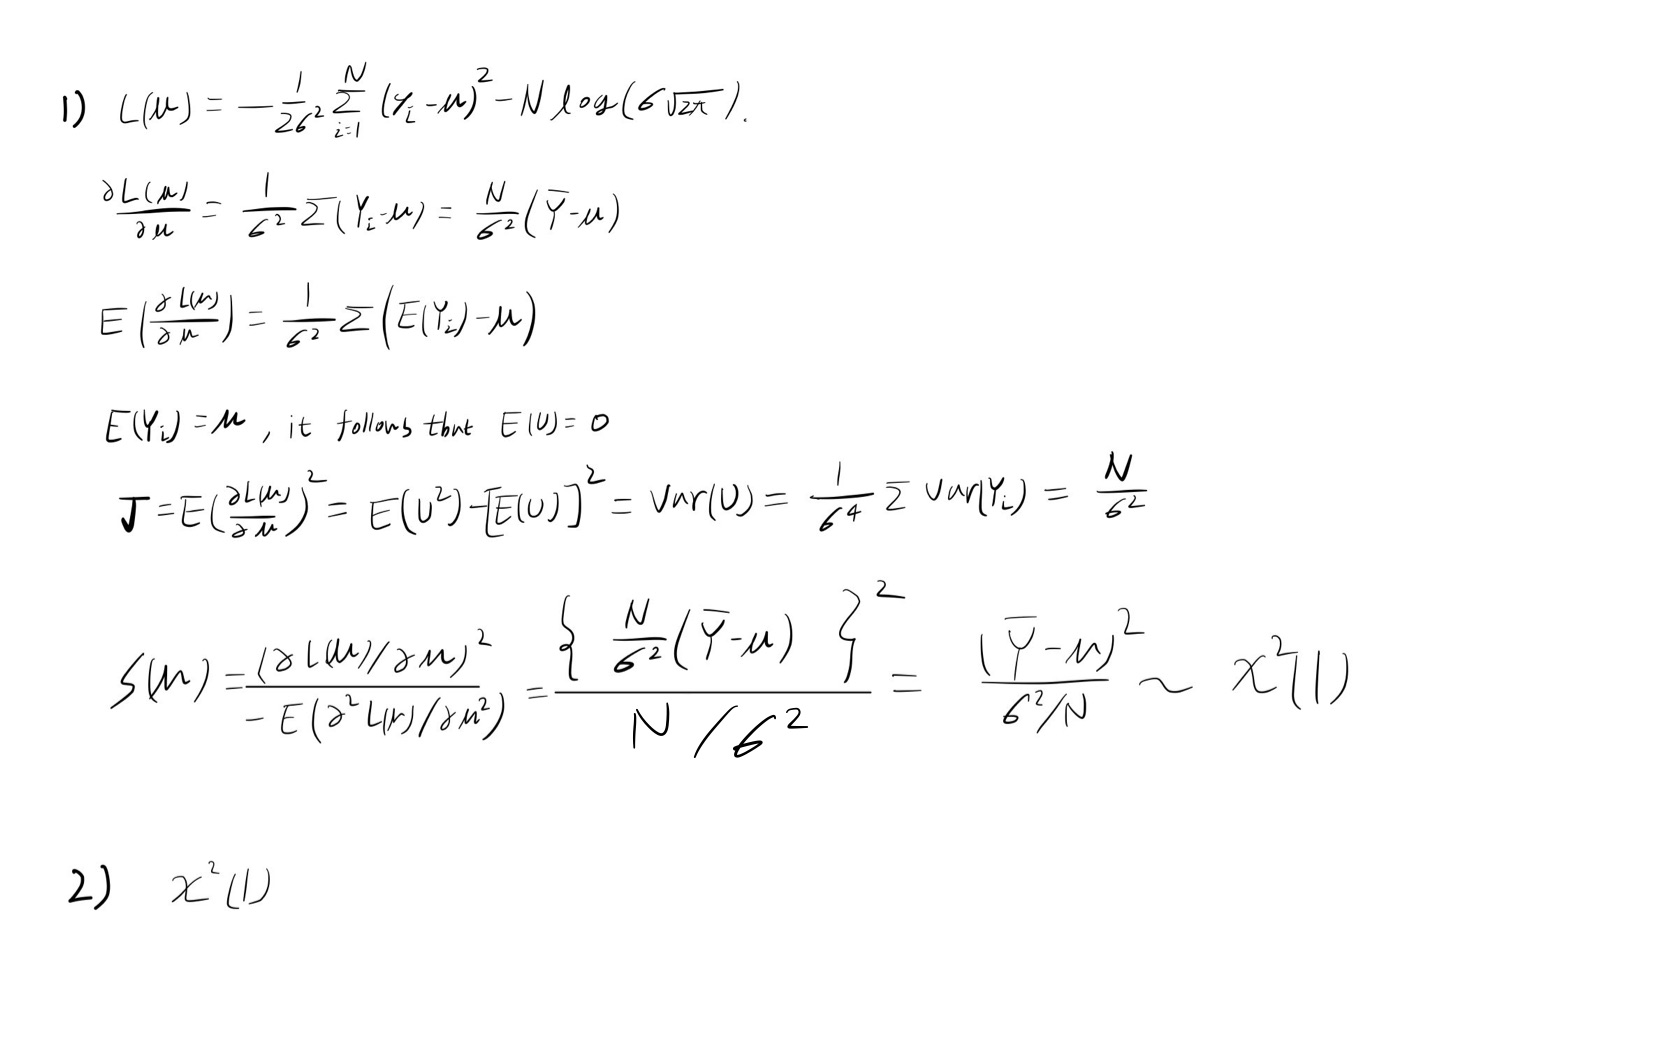 1) L(μ) = -1/(2σ²) Σ_{i=1}^{N} (Y_i - μ)² - N log(σ√2π).
∂L(μ)/∂μ = 1/σ² Σ(Y_i - μ) = N/σ² (Ȳ - μ)
E(∂L(μ)/∂μ) = 1/σ² Σ(E(Y_i) - μ)
E(Y_i) = μ, it follows that E(U) = 0
J = E(∂L(μ)/∂μ)² = E(U²) - [E(U)]² = Var(U) = 1/σ⁴ Σ Var(Y_i) = N/σ²
S(μ) = (∂L(μ)/∂μ)² / -E(∂²L(μ)/∂μ²) = {N/σ² (Ȳ - μ)}² / N/σ² = (Ȳ - μ)² / σ²/N ~ χ²(1)
2) χ²(1)